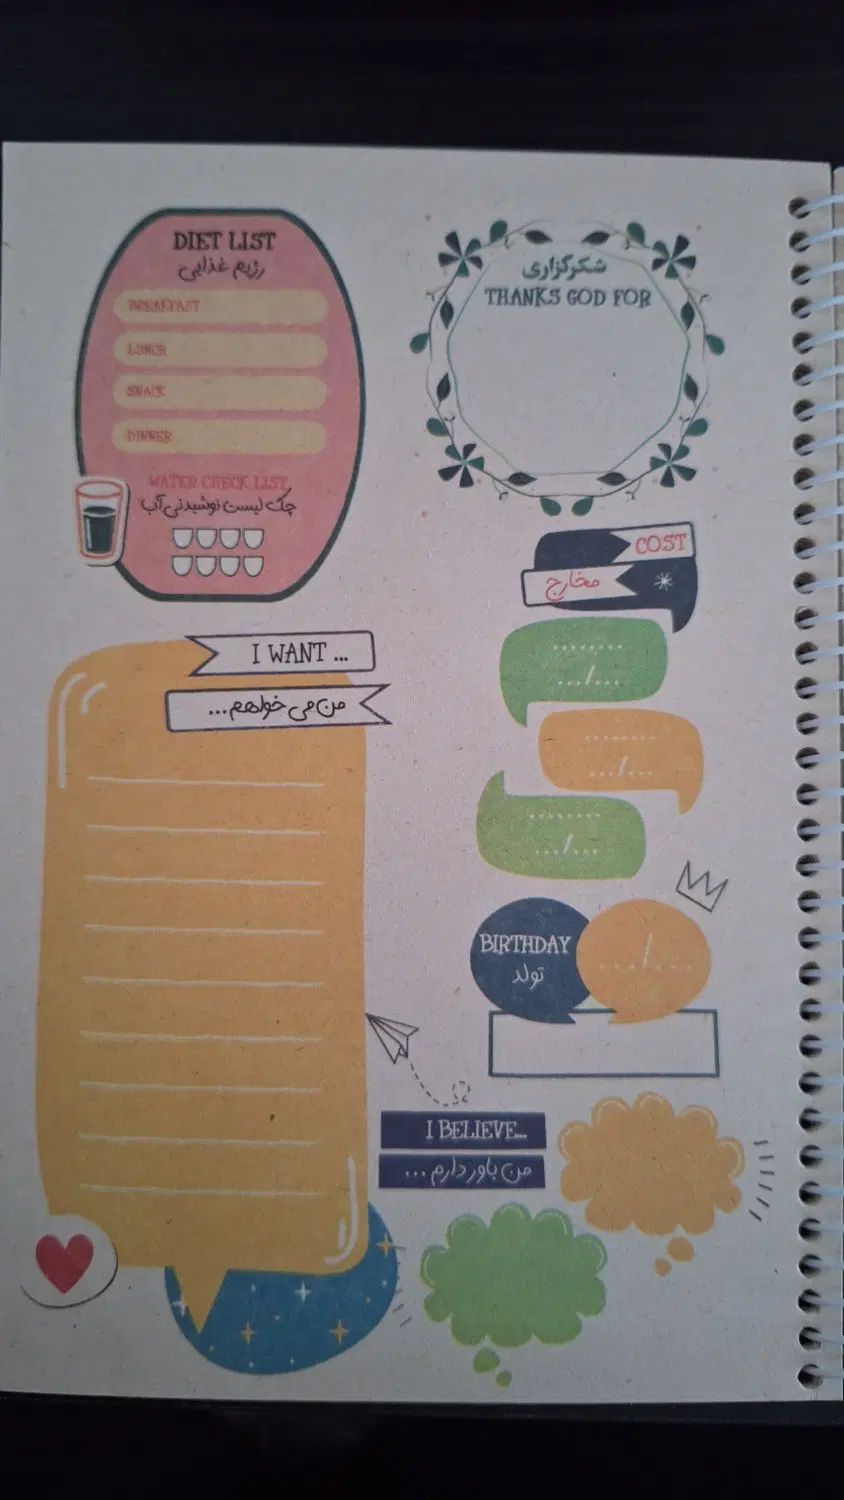 DIET LIST
رژیم غذایی
BREAKFAST
LUNCH
SNACK
DINNER
WATER CHECK LIST
چک لیست نوشیدنی آب
شکرگزاری
THANKS GOD FOR
COST
مخارج
........
.../...
........
.../...
........
.../...
I WANT ...
من می خواهم...
BIRTHDAY
تولد
.../...
I BELIEVE...
من باور دارم ...